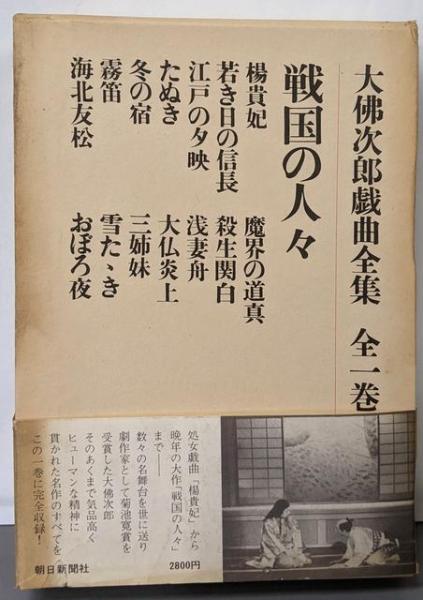 大佛次郎戯曲全集 全一巻
戦国の人々
楊貴妃
若き日の信長
江戸の夕映
たぬき
冬の宿
霧笛
海北友松
魔界の道真
殺生関白
浅妻舟
大仏炎上
三姉妹
雪たゝき
おぼろ夜
処女戯曲「楊貴妃」から
晩年の大作「戦国の人々」
まで――
数々の名舞台を世に送り
劇作家として菊池寛賞を
受賞した大佛次郎
そのあくまで気品高く
ヒューマンな精神に
貫かれた名作のすべてを
この一巻に完全収録！
朝日新聞社
2800円